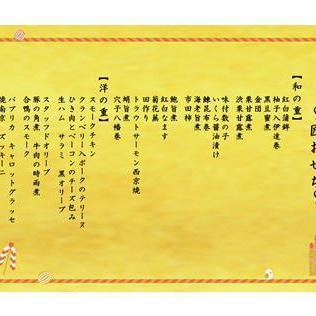 【和の重】
紅白蒲鉾
柚子入伊達巻
黒豆蜜煮
金団
栗甘露煮
渋栗甘露煮
味付数の子
いくら醤油漬け
鰊昆布巻
海老旨煮
市田柿
鮑旨煮
紅白なます
菊花蕪
田作り
トラウトサーモン西京焼
蛸旨煮
穴子八幡巻
【洋の重】
スモークチキン
クランベリー入ポークのテリーヌ
ひき肉とベーコンのチーズ包み
生ハム サラミ 黒オリーブ
スタッフドオリーブ
豚の角煮 牛肉の時雨煮
合鴨のスモーク
パプリカ キャロットグラッセ
焼南京 ズッキーニ